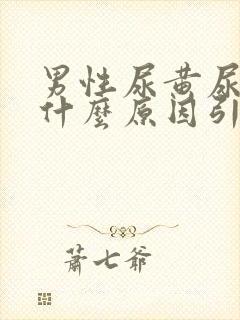 男性尿黄尿
什麼原因引
蕭七爺